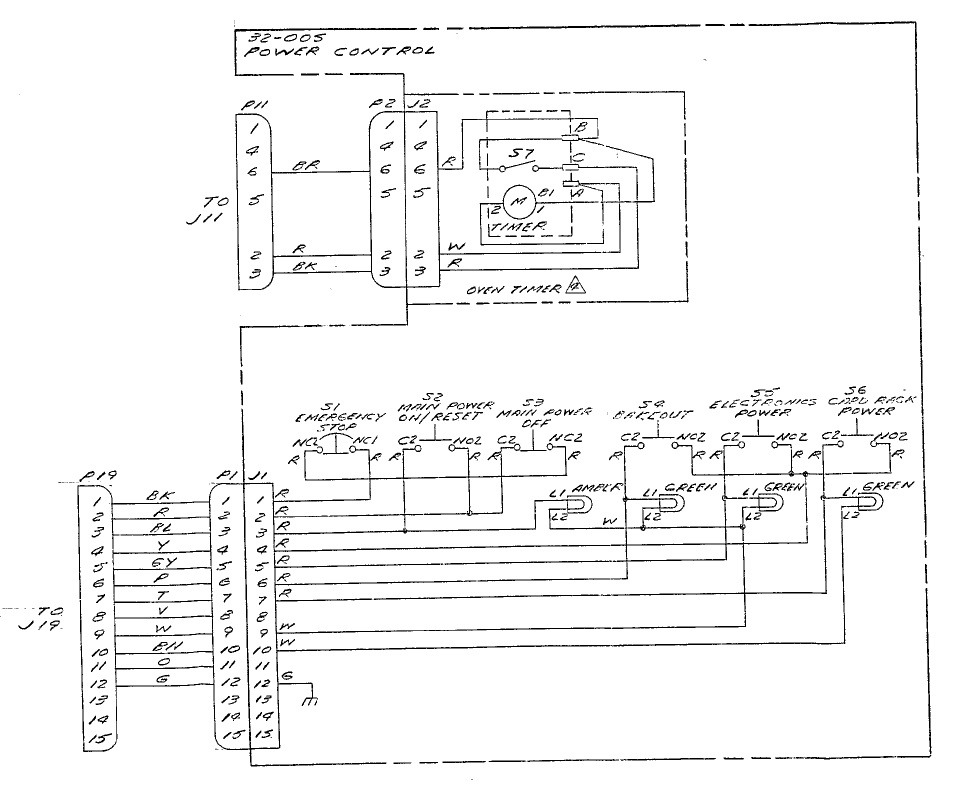 32-005
POWER CONTROL
P11
P2 J2
1 1 1
4 4 4
6 BR 6 6 R
5 5 5
TO
J11
2 R 2 2 W
3 BK 3 3 R
B
S7 C
A
M B1
2 1
TIMER
OVEN TIMER 4
S1
EMERGENCY
STOP
S2
MAIN POWER
ON/RESET
S3
MAIN POWER
OFF
S4
BAKEOUT
S5
ELECTRONICS
POWER
S6
CARD RACK
POWER
NC2 NC1 C2 NO2 C2 NC2 C2 NO2 C2 NO2 C2 NO2
R R R R R R R R R R R R
L1 AMBER L1 GREEN L1 GREEN L1 GREEN
L2 W L2 L2 L2
P19 P1 J1
1 BK 1 1 R
2 R 2 2 R
3 BL 3 3 R
4 Y 4 4 R
5 GY 5 5 R
6 P 6 6 R
7 T 7 7 R
TO
J19
8 V 8 8
9 W 9 9 W
10 BN 10 10 W
11 O 11 11
12 G 12 12 G
13 13 13
14 14 14
15 15 15